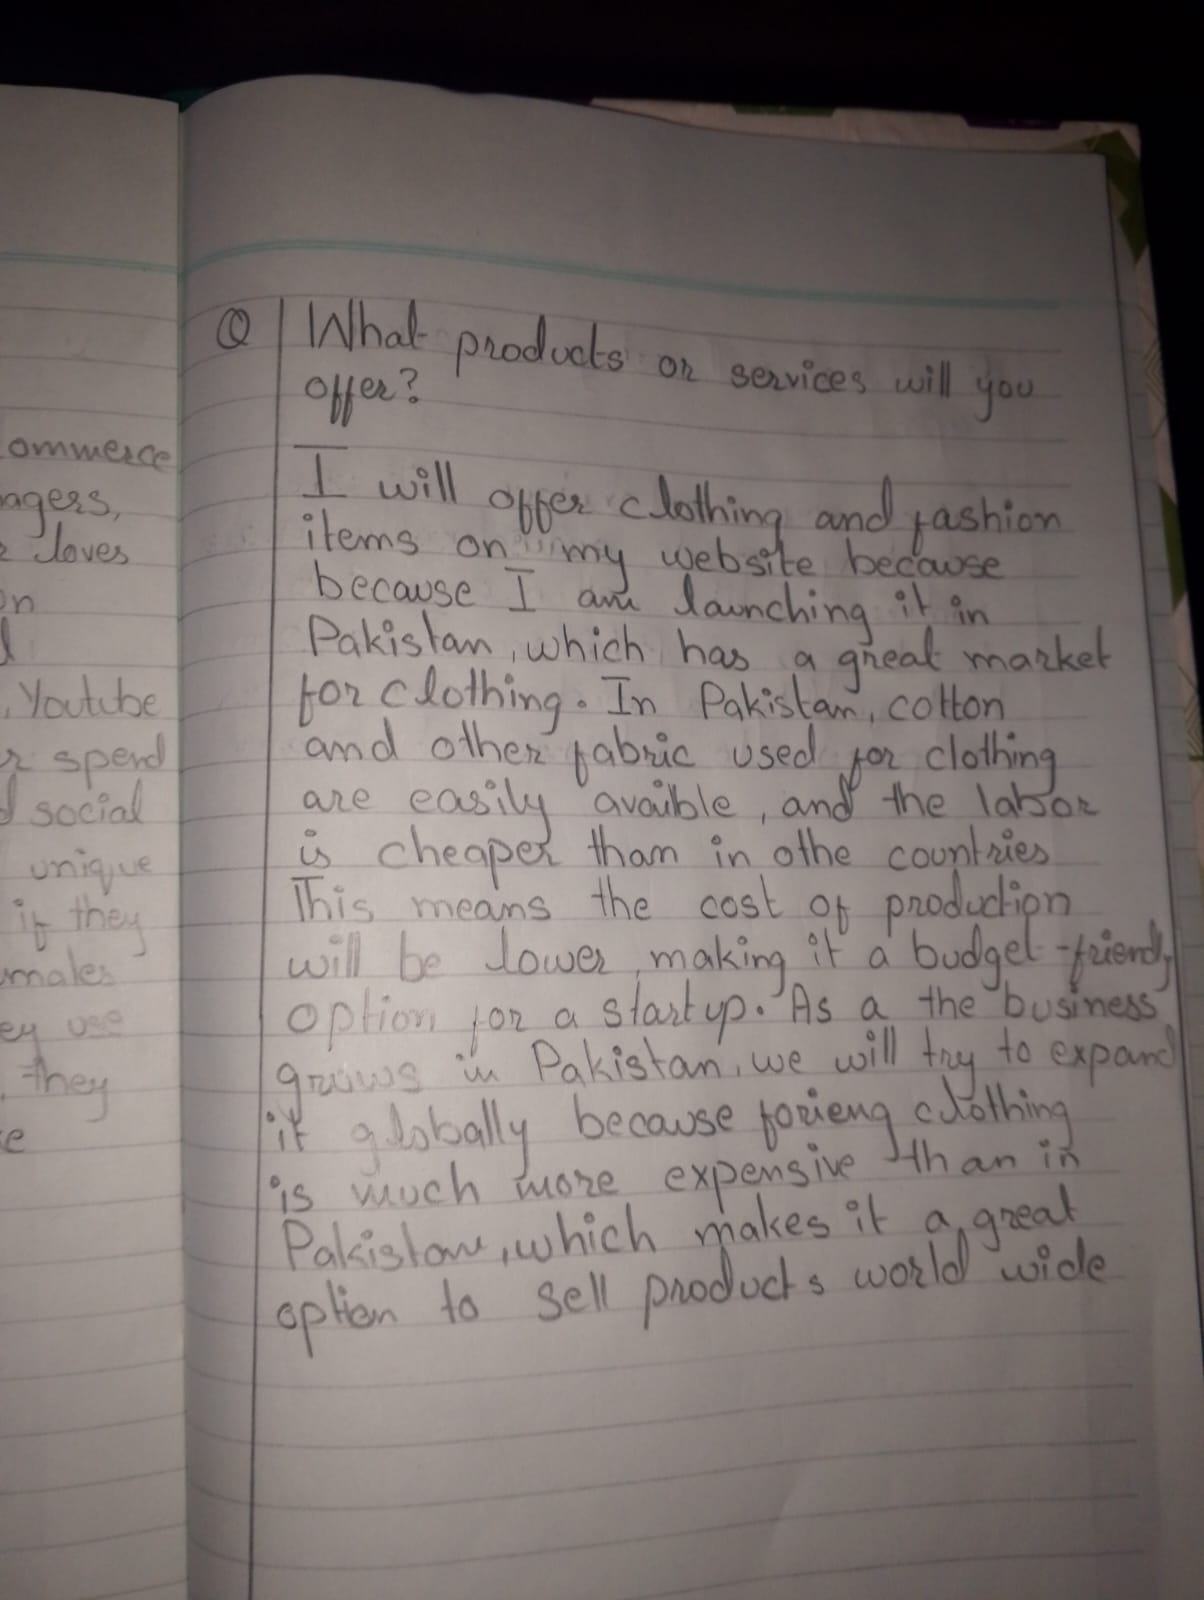 ommerce
agers,
loves
on
Youtube
spend
social
unique
if they
males
ey use
they
e
Q What products or services will you
offer?
I will offer clothing and fashion
items on my website because
because I am launching it in
Pakistan, which has a great market
for clothing. In Pakistan, cotton
and other fabric used for clothing
are easily avaible, and the labor
is cheaper than in othe countries
This means the cost of production
will be lower, making it a budget-friendly
option for a startup. As a the business
grows in Pakistan, we will try to expand
it globally because forieng clothing
is much more expensive than in
Pakistan, which makes it a great
option to sell products world wide